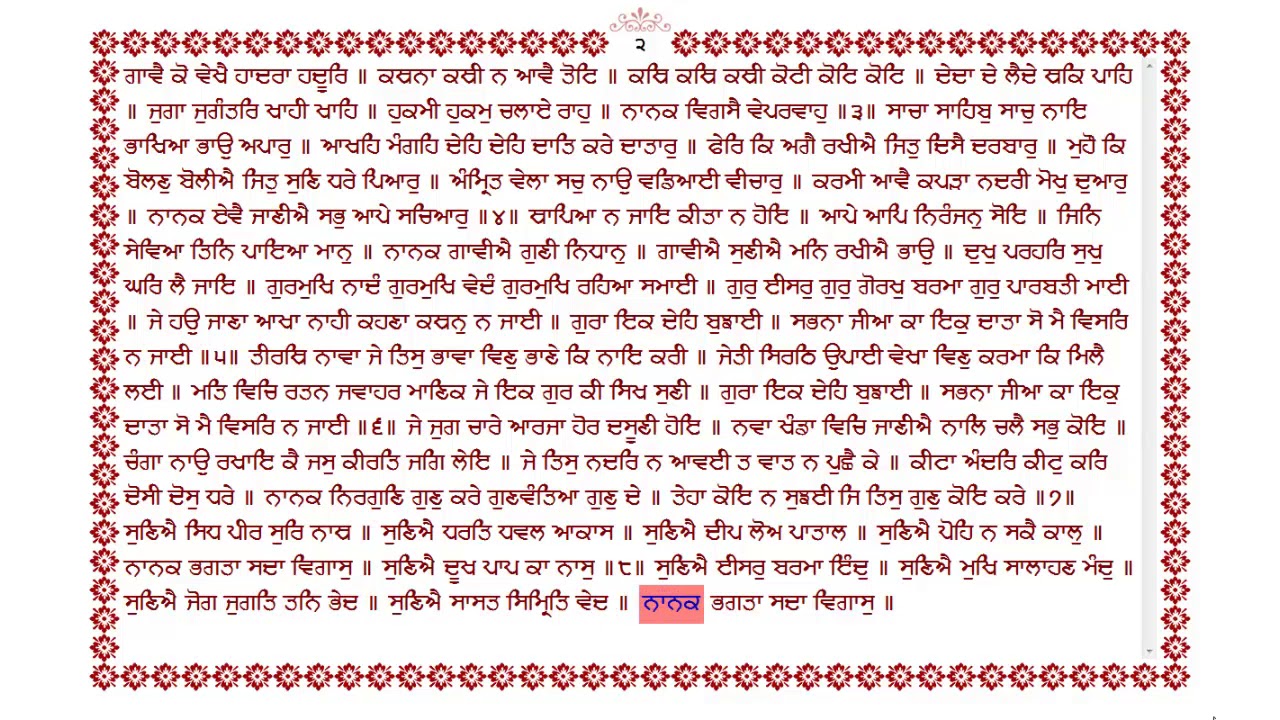 ੨
ਗਾਵੈ ਕੋ ਵੇਖੈ ਹਾਦਰਾ ਹਦੂਰਿ ॥ ਕਥਨਾ ਕਥੀ ਨ ਆਵੈ ਤੋਟਿ ॥ ਕਥਿ ਕਥਿ ਕਥੀ ਕੋਟੀ ਕੋਟਿ ਕੋਟਿ ॥ ਦੇਦਾ ਦੇ ਲੈਦੇ ਥਕਿ ਪਾਹਿ
॥ ਜੁਗਾ ਜੁਗੰਤਰਿ ਖਾਹੀ ਖਾਹਿ ॥ ਹੁਕਮੀ ਹੁਕਮੁ ਚਲਾਏ ਰਾਹੁ ॥ ਨਾਨਕ ਵਿਗਸੈ ਵੇਪਰਵਾਹੁ ॥੩॥ ਸਾਚਾ ਸਾਹਿਬੁ ਸਾਚੁ ਨਾਇ
ਭਾਖਿਆ ਭਾਉ ਅਪਾਰੁ ॥ ਆਖਹਿ ਮੰਗਹਿ ਦੇਹਿ ਦੇਹਿ ਦਾਤਿ ਕਰੇ ਦਾਤਾਰੁ ॥ ਫੇਰਿ ਕਿ ਅਗੈ ਰਖੀਐ ਜਿਤੁ ਦਿਸੈ ਦਰਬਾਰੁ ॥ ਮੁਹੌ ਕਿ
ਬੋਲਣੁ ਬੋਲੀਐ ਜਿਤੁ ਸੁਣਿ ਧਰੇ ਪਿਆਰੁ ॥ ਅੰਮ੍ਰਿਤ ਵੇਲਾ ਸਚੁ ਨਾਉ ਵਡਿਆਈ ਵੀਚਾਰੁ ॥ ਕਰਮੀ ਆਵੈ ਕਪੜਾ ਨਦਰੀ ਮੋਖੁ ਦੁਆਰੁ
॥ ਨਾਨਕ ਏਵੈ ਜਾਣੀਐ ਸਭੁ ਆਪੇ ਸਚਿਆਰੁ ॥੪॥ ਥਾਪਿਆ ਨ ਜਾਇ ਕੀਤਾ ਨ ਹੋਇ ॥ ਆਪੇ ਆਪਿ ਨਿਰੰਜਨੁ ਸੋਇ ॥ ਜਿਨਿ
ਸੇਵਿਆ ਤਿਨਿ ਪਾਇਆ ਮਾਨੁ ॥ ਨਾਨਕ ਗਾਵੀਐ ਗੁਣੀ ਨਿਧਾਨੁ ॥ ਗਾਵੀਐ ਸੁਣੀਐ ਮਨਿ ਰਖੀਐ ਭਾਉ ॥ ਦੁਖੁ ਪਰਹਰਿ ਸੁਖੁ
ਘਰਿ ਲੈ ਜਾਇ ॥ ਗੁਰਮੁਖਿ ਨਾਦੰ ਗੁਰਮੁਖਿ ਵੇਦੰ ਗੁਰਮੁਖਿ ਰਹਿਆ ਸਮਾਈ ॥ ਗੁਰੁ ਈਸਰੁ ਗੁਰੁ ਗੋਰਖੁ ਬਰਮਾ ਗੁਰੁ ਪਾਰਬਤੀ ਮਾਈ
॥ ਜੇ ਹਉ ਜਾਣਾ ਆਖਾ ਨਾਹੀ ਕਹਣਾ ਕਥਨੁ ਨ ਜਾਈ ॥ ਗੁਰਾ ਇਕ ਦੇਹਿ ਬੁਝਾਈ ॥ ਸਭਨਾ ਜੀਆ ਕਾ ਇਕੁ ਦਾਤਾ ਸੋ ਮੈ ਵਿਸਰਿ
ਨ ਜਾਈ ॥੫॥ ਤੀਰਥਿ ਨਾਵਾ ਜੇ ਤਿਸੁ ਭਾਵਾ ਵਿਣੁ ਭਾਣੇ ਕਿ ਨਾਇ ਕਰੀ ॥ ਜੇਤੀ ਸਿਰਠਿ ਉਪਾਈ ਵੇਖਾ ਵਿਣੁ ਕਰਮਾ ਕਿ ਮਿਲੈ
ਲਈ ॥ ਮਤਿ ਵਿਚਿ ਰਤਨ ਜਵਾਹਰ ਮਾਣਿਕ ਜੇ ਇਕ ਗੁਰ ਕੀ ਸਿਖ ਸੁਣੀ ॥ ਗੁਰਾ ਇਕ ਦੇਹਿ ਬੁਝਾਈ ॥ ਸਭਨਾ ਜੀਆ ਕਾ ਇਕੁ
ਦਾਤਾ ਸੋ ਮੈ ਵਿਸਰਿ ਨ ਜਾਈ ॥੬॥ ਜੇ ਜੁਗ ਚਾਰੇ ਆਰਜਾ ਹੋਰ ਦਸੂਣੀ ਹੋਇ ॥ ਨਵਾ ਖੰਡਾ ਵਿਚਿ ਜਾਣੀਐ ਨਾਲਿ ਚਲੈ ਸਭੁ ਕੋਇ ॥
ਚੰਗਾ ਨਾਉ ਰਖਾਇ ਕੈ ਜਸੁ ਕੀਰਤਿ ਜਗਿ ਲੇਇ ॥ ਜੇ ਤਿਸੁ ਨਦਰਿ ਨ ਆਵਈ ਤ ਵਾਤ ਨ ਪੁਛੈ ਕੇ ॥ ਕੀਟਾ ਅੰਦਰਿ ਕੀਟੁ ਕਰਿ
ਦੋਸੀ ਦੋਸੁ ਧਰੇ ॥ ਨਾਨਕ ਨਿਰਗੁਣਿ ਗੁਣੁ ਕਰੇ ਗੁਣਵੰਤਿਆ ਗੁਣੁ ਦੇ ॥ ਤੇਹਾ ਕੋਇ ਨ ਸੁਝਈ ਜਿ ਤਿਸੁ ਗੁਣੁ ਕੋਇ ਕਰੇ ॥੭॥
ਸੁਣਿਐ ਸਿਧ ਪੀਰ ਸੁਰਿ ਨਾਥ ॥ ਸੁਣਿਐ ਧਰਤਿ ਧਵਲ ਆਕਾਸ ॥ ਸੁਣਿਐ ਦੀਪ ਲੋਅ ਪਾਤਾਲ ॥ ਸੁਣਿਐ ਪੋਹਿ ਨ ਸਕੈ ਕਾਲੁ ॥
ਨਾਨਕ ਭਗਤਾ ਸਦਾ ਵਿਗਾਸੁ ॥ ਸੁਣਿਐ ਦੂਖ ਪਾਪ ਕਾ ਨਾਸੁ ॥੮॥ ਸੁਣਿਐ ਈਸਰੁ ਬਰਮਾ ਇੰਦੁ ॥ ਸੁਣਿਐ ਮੁਖਿ ਸਾਲਾਹਣ ਮੰਦੁ ॥
ਸੁਣਿਐ ਜੋਗ ਜੁਗਤਿ ਤਨਿ ਭੇਦ ॥ ਸੁਣਿਐ ਸਾਸਤ ਸਿਮ੍ਰਿਤਿ ਵੇਦ ॥ ਨਾਨਕ ਭਗਤਾ ਸਦਾ ਵਿਗਾਸੁ ॥